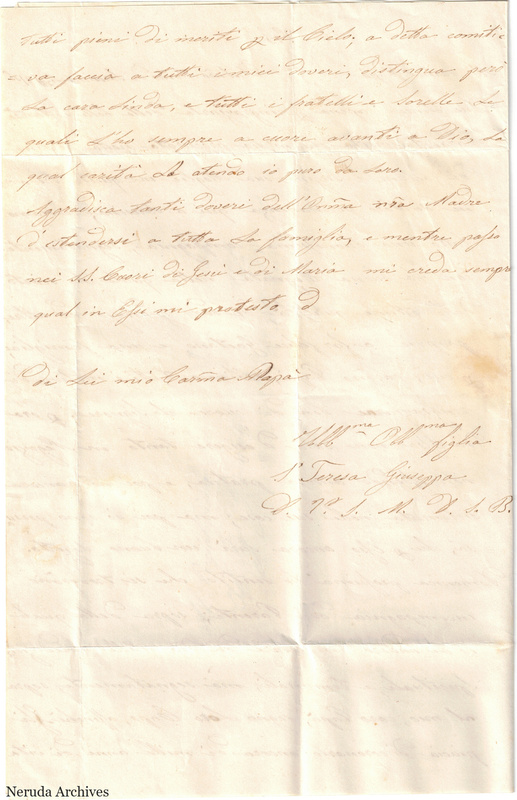 tutti pieni di meriti p il Cielo; a detta comiti=
va faccia a tutti i miei doveri, distingua però
la cara Linda, e tutti i fratelli e Sorelle Le
quali L'ho sempre a cuore avanti a Dio, La
qual carità La atendo io puro da Loro.
Aggradisca tanti doveri dell'Onñia nña Madre
d'estendersi a tutta La famiglia, e mentre passo
nei SS. Cuori di Gesù e di Maria mi creda sempre
qual in Essi mi protesto
di Lei mio Carmã Papà
Um̃a Obb̃ma figlia
Sr Teresa Giuseppa
D. S. M. D. S. B.
Neruda Archives